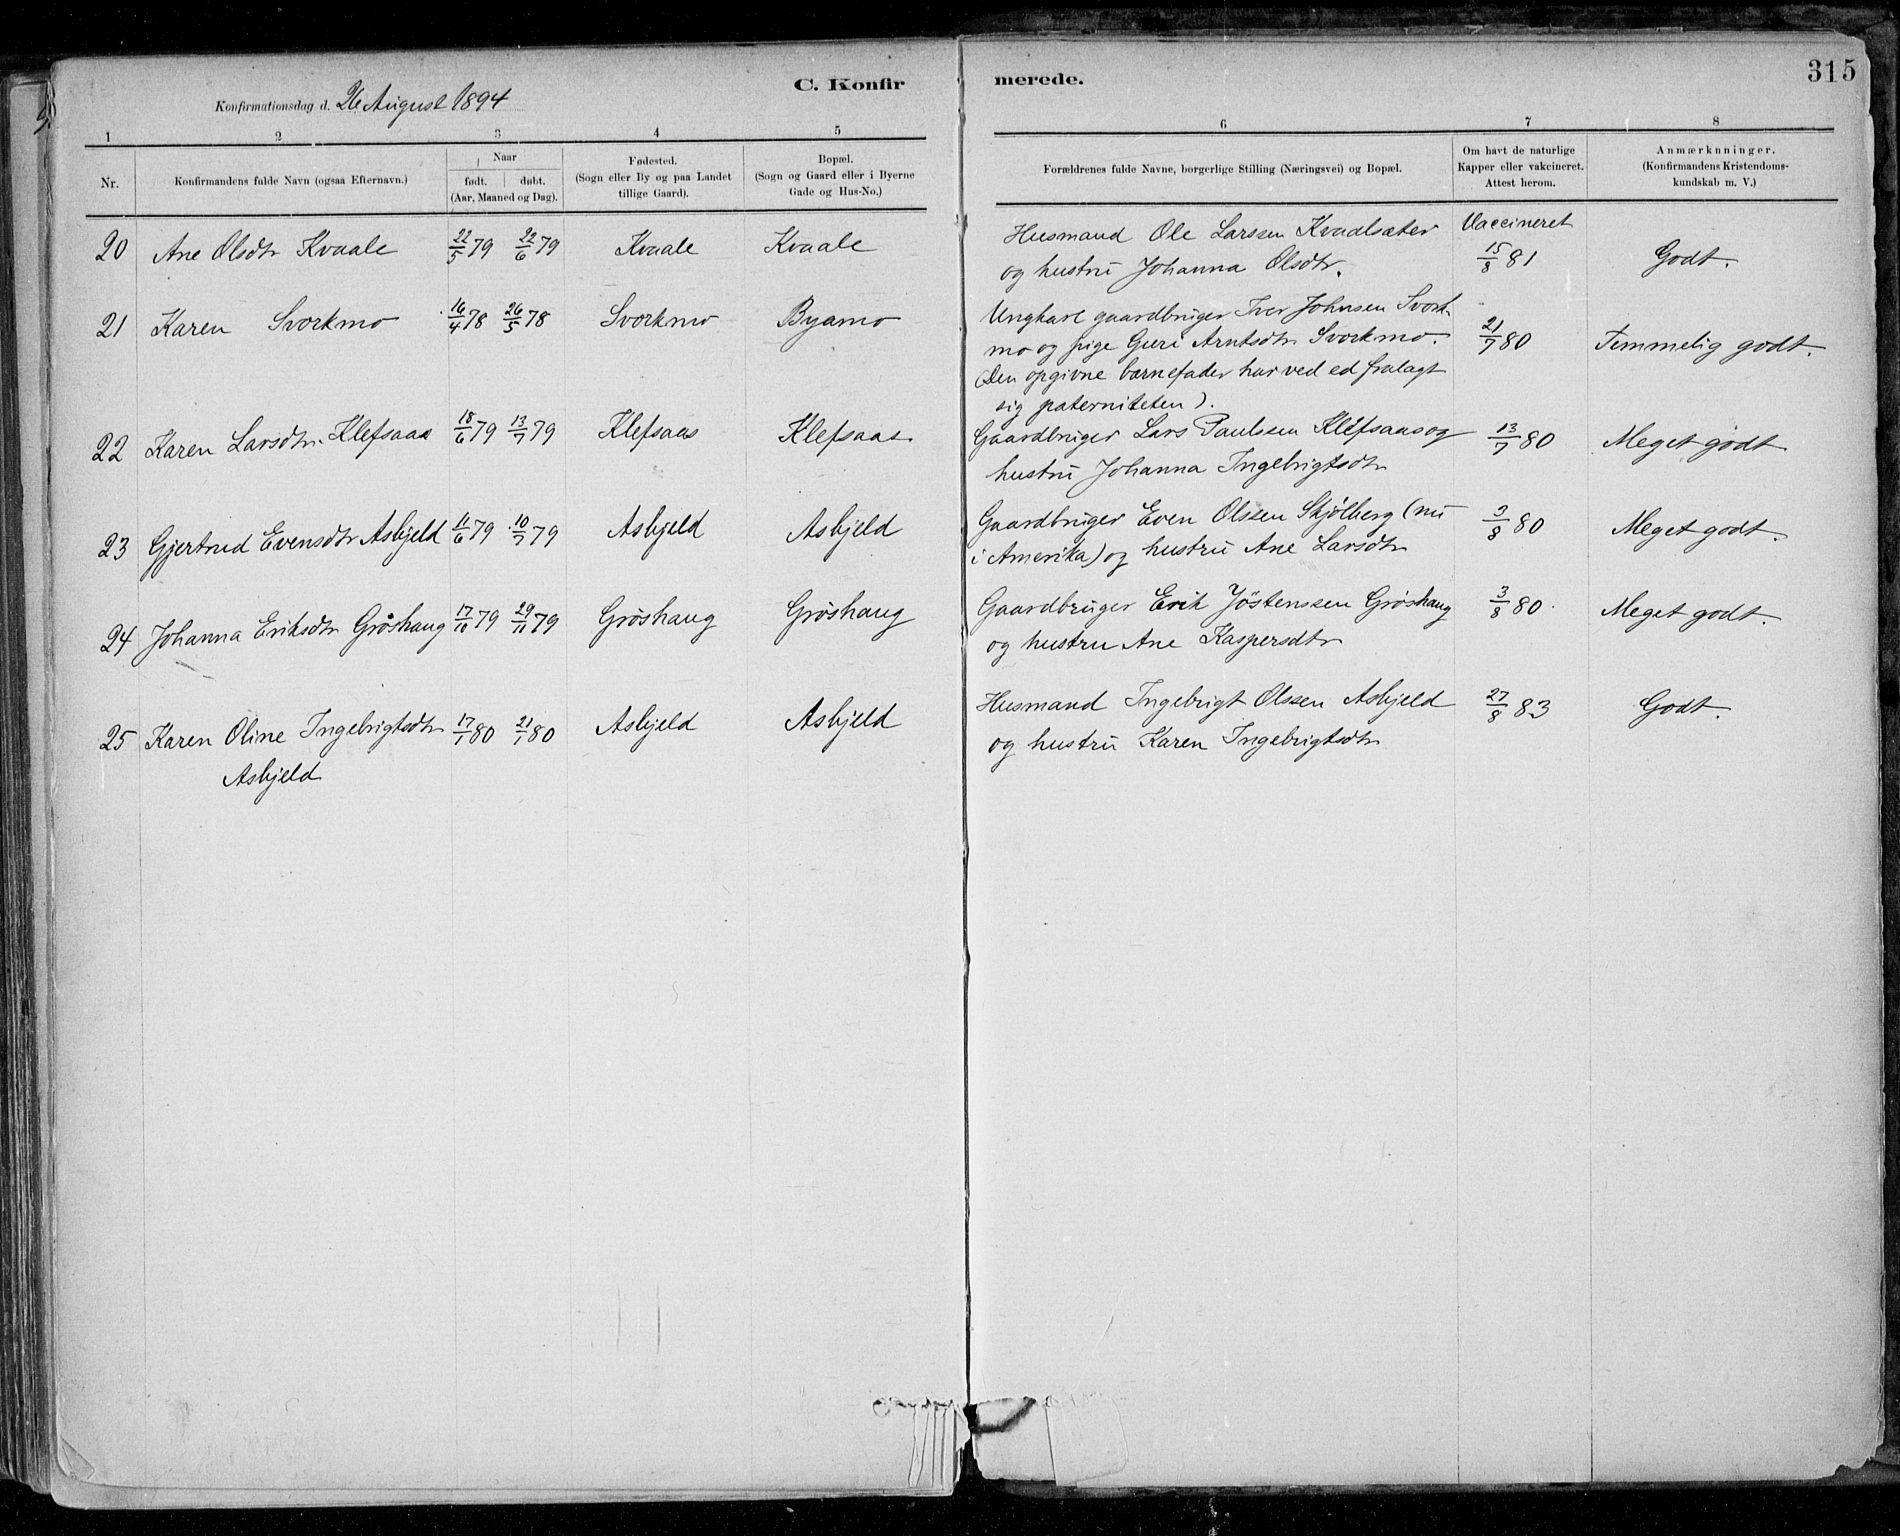 C. Konfirmerede.
315
Konfirmationsdag d. 26 August 1894
1 2 3 4 5 6 7 8
Nr.
Konfirmandens fulde Navn (ogsaa Efternavn.)
Naar
født. døbt.
(Aar, Maaned og Dag).
Fødested.
(Sogn eller By og paa Landet
tillige Gaard).
Bopæl.
(Sogn og Gaard eller i Byerne
Gade og Hus-No.)
Forældrenes fulde Navne, borgerlige Stilling (Næringsvei) og Bopæl.
Om havt de naturlige
Kapper eller vakcineret.
Attest herom.
Anmærknninger.
(Konfirmandens Kristendoms-
kundskab m. V.)
20 Ane Olsdtr Kvaale 22/5 79 22/6 79 Kvaale Kvaale
Husmand Ole Larssen Kvaalsæter
og hustru Johanna Olsdtr.
Vaccineret
15/8 81 Godt.
21 Karen Svorkmo 16/4 78 26/5 78 Svorkmo Byamo
Ungkarl gaardbruger Iver Johnsen Svork-
mo og pige Guri Arntsdtr Svorkmo.
(Den opgivne barnefader har ved ed fralagt
sig paterniteten).
21/7 80 Temmelig godt.
22 Karen Larsdtr. Klefsaas 18/6 79 13/7 79 Klefsaas Klefsaas
Gaardbruger Lars Paulsen Klefsaas og
hustru Johanna Ingebrigtsdtr
13/7 80 Meget godt
23 Gjertrud Evensdtr Asbjeld 11/6 79 10/7 79 Asbjeld Asbjeld
Gaardbruger Even Olssen Skjølberg (nu
i Amerika) og hustru Ane Larsdtr
3/8 80 Meget godt.
24 Johanna Eriksdtr Grøshaug 17/10 79 29/11 79 Grøshaug Grøshaug
Gaardbruger Erik Jøstenssen Grøshaug
og hustru Ane Kaspersdtr
3/8 80 Meget godt.
25 Karen Oline Ingebrigtsdtr 17/1 80 21/1 80 Asbjeld Asbjeld
Asbjeld
Husmand Ingebrigt Olssen Asbjeld
og hustru Karen Ingebrigtsdtr
27/8 83 Godt.